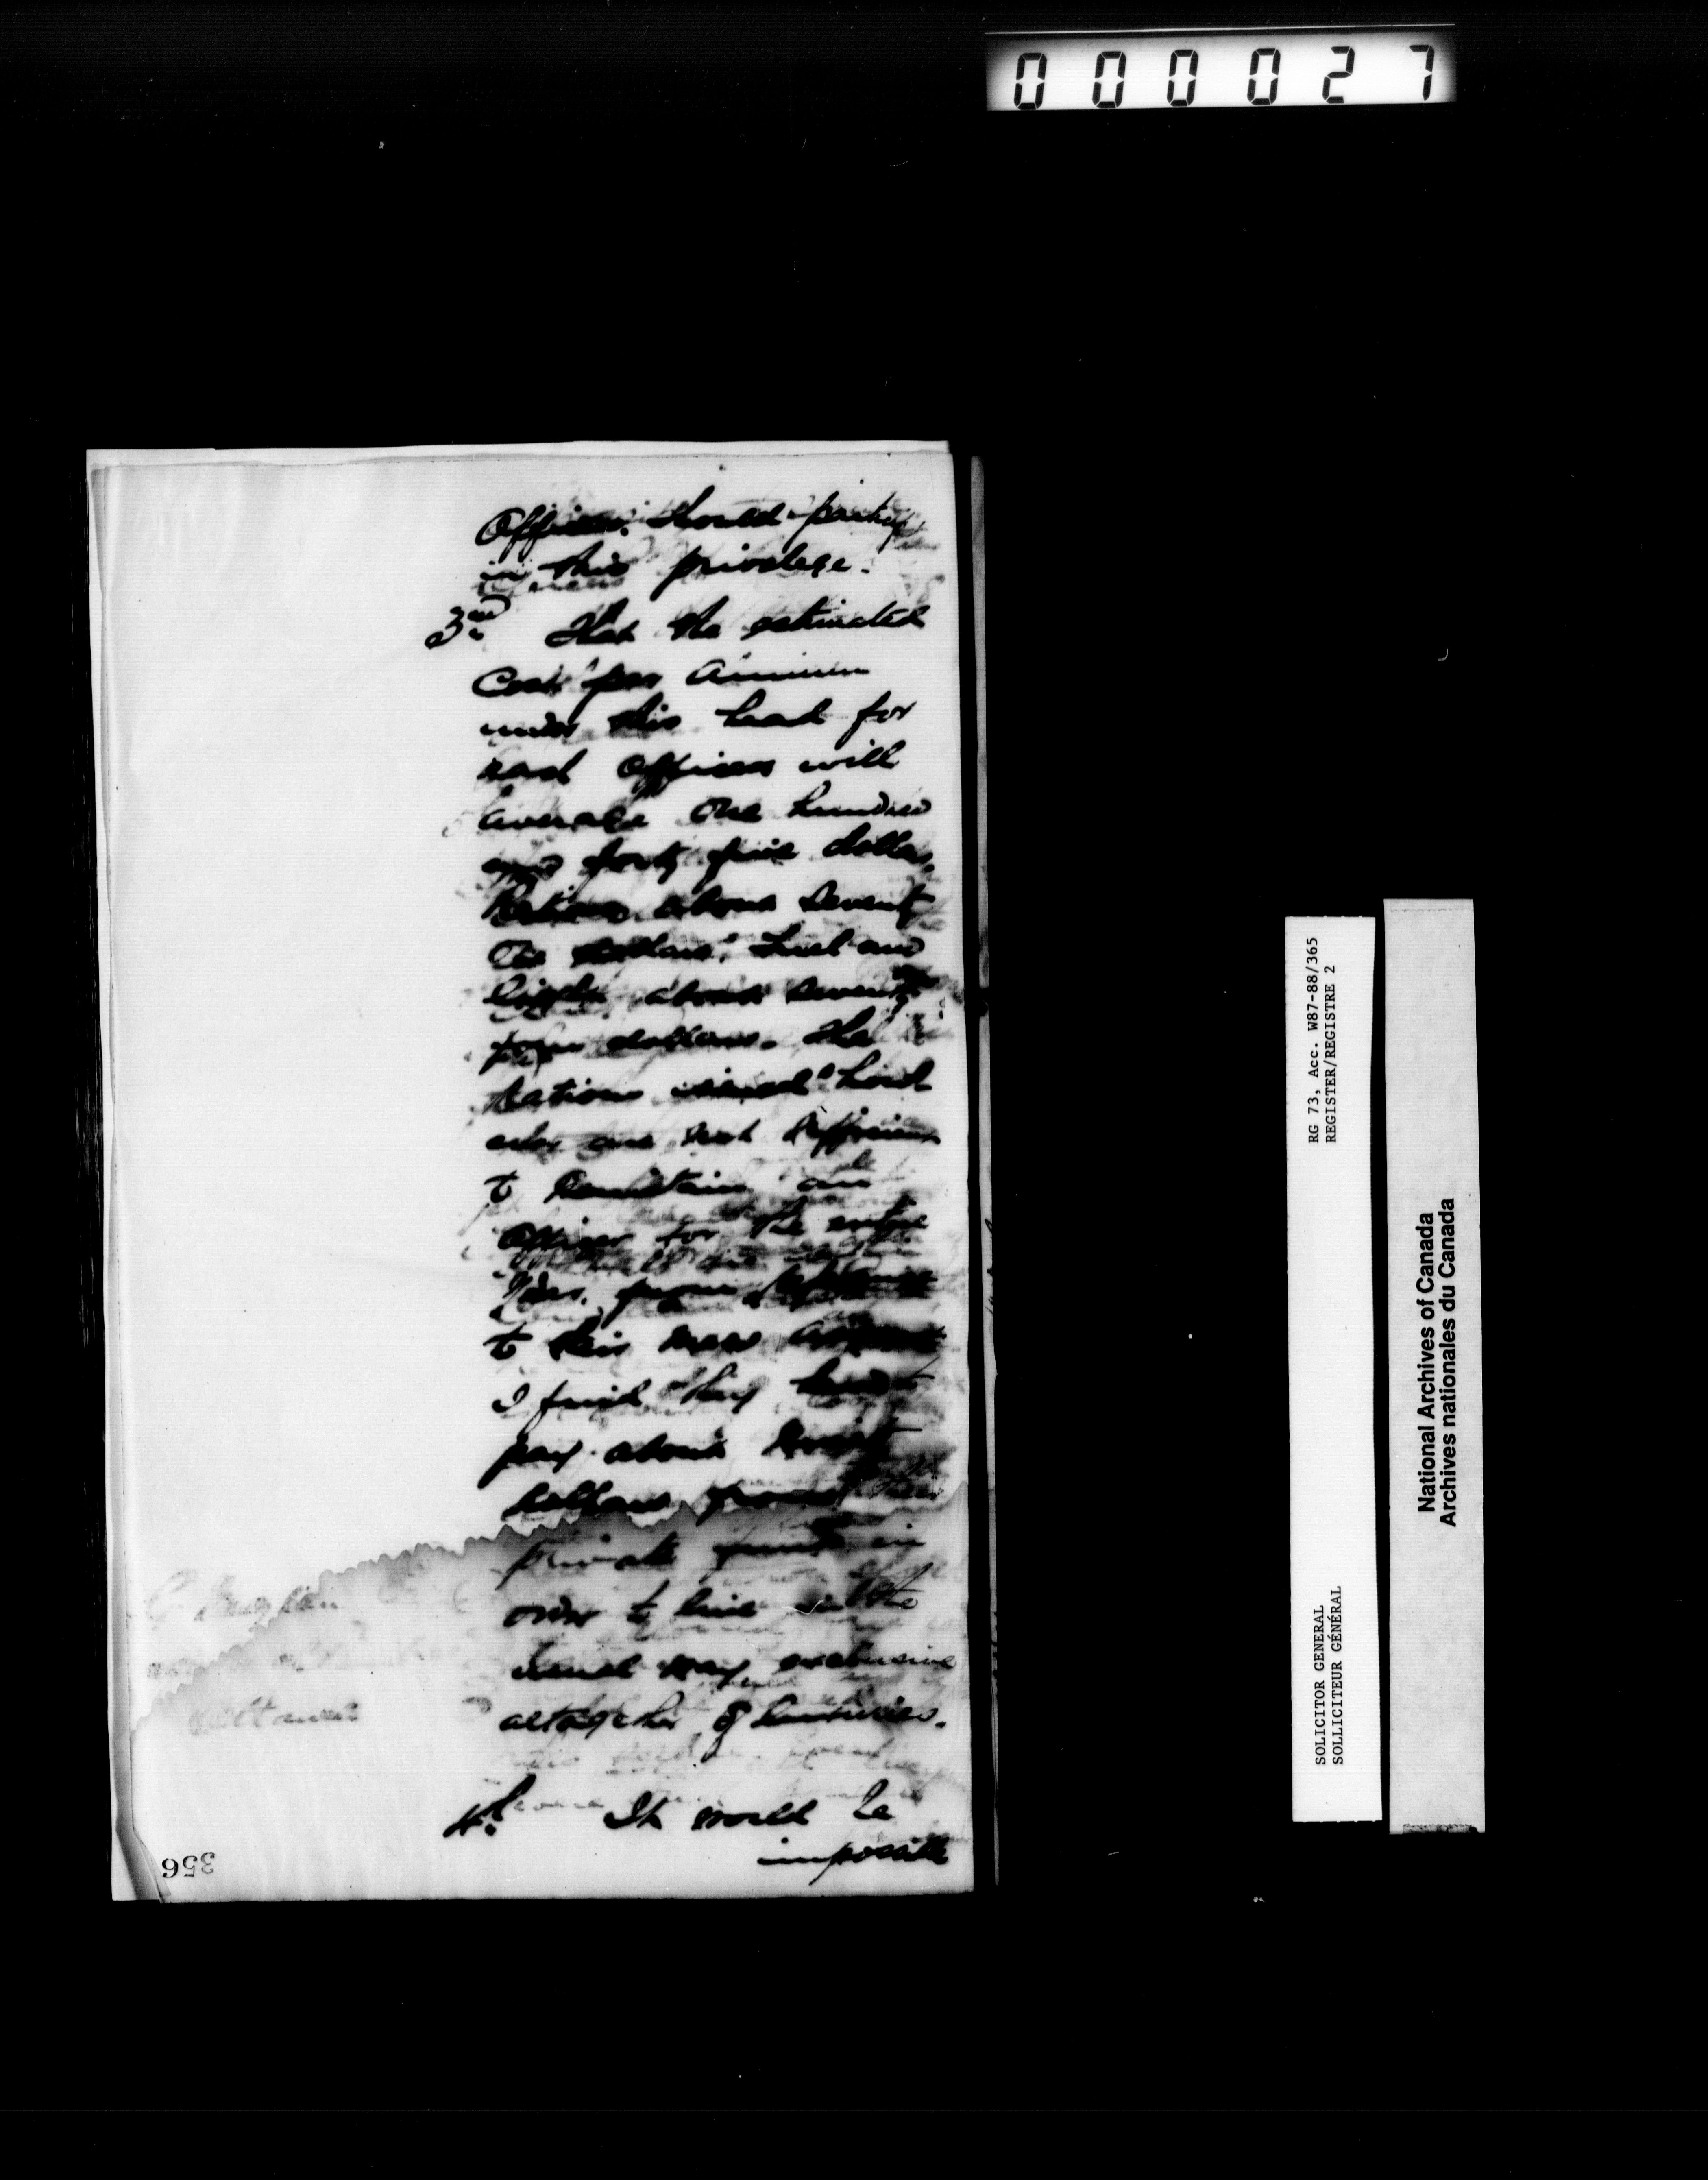 000027
Officers should
in this privilege.
3rd. That the estimated
Cost per Annum
under this head for
each Officer will
average One hundred
and forty five dollars,
Rations about seventy
One dollars, Fuel and
light about seventy
four dollars. The
Rations issued
are not sufficient
to maintain an
Officer for the entire
to their mess
I find they have to
pay about
dollars from their
private funds in
order to live in the
usual way exclusive
altogether of luxuries.
4th. It would be
impossible
356
RG 73, Acc. W87-88/365
REGISTER/REGISTRE 2
SOLICITOR GENERAL
SOLLICITEUR GÉNÉRAL
National Archives of Canada
Archives nationales du Canada